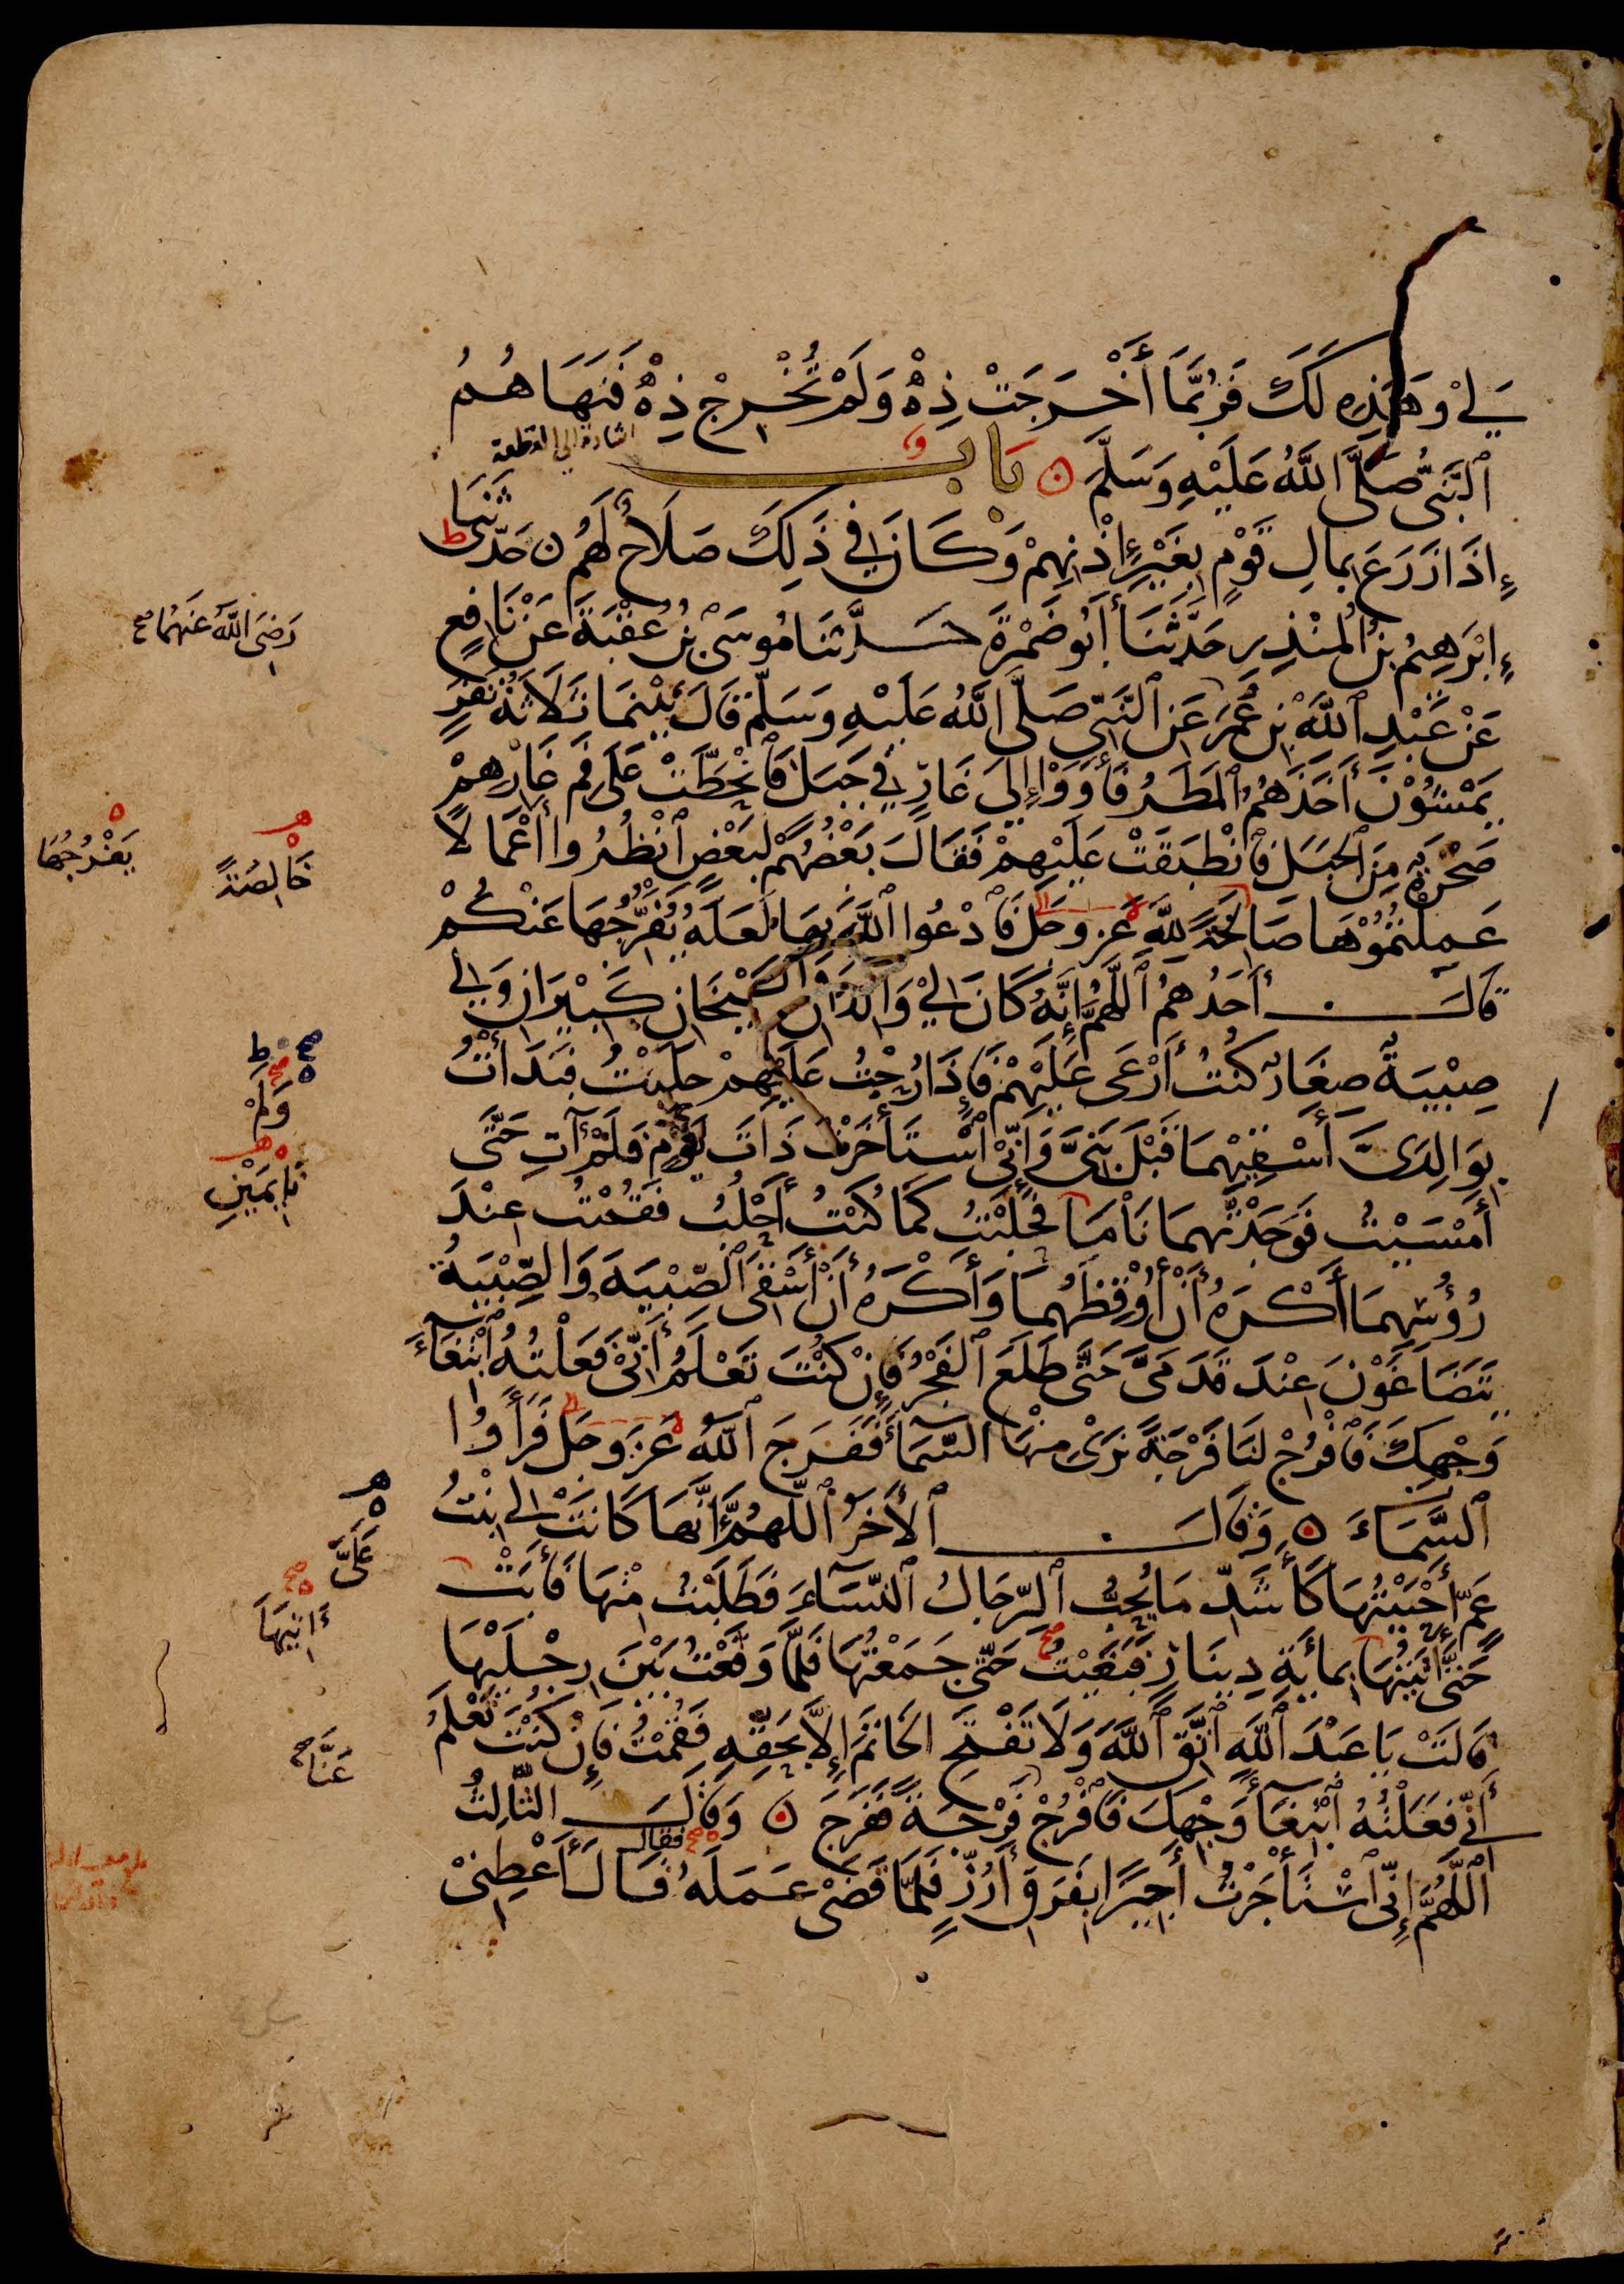 لِي وَهَذِهِ لَكَ فَرُبَّمَا أَخْرَجَتْ ذِهْ وَلَمْ تُخْرِجْ ذِهْ فَنَهَاهُمُ
اشارة الى القطعة
ٱلنَّبِيُّ صَلَّى اللَّهُ عَلَيْهِ وَسَلَّمَ ن بَابٌ
إِذَا زَرَعَ بِمَالِ قَوْمٍ بِغَيْرِ إِذْنِهِمْ وَكَانَ فِي ذَلِكَ صَلَاحٌ لَهُمْ ن حَدَّثَنَا
إِبْرَهِيمُ بْنُ الْمُنْذِرِ حَدَّثَنَا أَبُو ضَمْرَةَ حَدَّثَنَا مُوسَى بْنُ عُقْبَةَ عَنْ نَافِعٍ
رَضِيَ اللَّهُ عَنْهُمَا صح
عَنْ عَبْدِ ٱللَّهِ بْنِ عُمَرَ عَنِ ٱلنَّبِيِّ صَلَّى اللَّهُ عَلَيْهِ وَسَلَّمَ قَالَ بَيْنَمَا ثَلَاثَةُ نَفَرٍ
يَمْشُوْنَ أَخَذَهُمُ ٱلْمَطَرُ فَأَوَوْا إِلَى غَارٍ فِي جَبَلٍ فَٱنْحَطَّتْ عَلَى فَمِ غَارِهِمْ
صَخْرَةٌ مِنَ ٱلْجَبَلِ فَٱنْطَبَقَتْ عَلَيْهِمْ فَقَالَ بَعْضُهُمْ لِبَعْضٍ ٱنْظُرُوا أَعْمَالًا
خَالِصَةً
يَفْرُجُهَا
عَمِلْتُمُوْهَا صَالِحَةً لِلَّهِ عَزَّ وَجَلَّ فَٱدْعُوا ٱللَّهَ بِهَا لَعَلَّهُ يُفَرِّجُهَا عَنْكُمْ
قَالَ أَحَدُهُمُ ٱللَّهُمَّ إِنَّهُ كَانَ لِيْ وَالِدَانِ شَيْخَانِ كَبِيْرَانِ وَلِي
صِبْيَةٌ صِغَارٌ كُنْتُ أَرْعَى عَلَيْهِمْ فَإِذَا رُحْتُ عَلَيْهِمْ حَلَبْتُ فَبَدَأْتُ
وَلَمْ
بِوَالِدَيَّ أَسْقِيْهِمَا قَبْلَ بَنِيَّ وَإِنِّي ٱسْتَأْخَرْتُ ذَاتَ يَوْمٍ فَلَمْ آتِ حَتَّى
نَايِمَيْنِ
أَمْسَيْتُ فَوَجَدْتُهُمَا نَامَا فَحَلَبْتُ كَمَا كُنْتُ أَحْلُبُ فَقُمْتُ عِنْدَ
رُؤُسِهِمَا أَكْرَهُ أَنْ أُوْقِظَهُمَا وَأَكْرَهُ أَنْ أَسْقِيَ ٱلصِّبْيَةَ وَالصِّبْيَةُ
يَتَضَاغَوْنَ عِنْدَ قَدَمَيَّ حَتَّى طَلَعَ ٱلْفَجْرُ فَإِنْ كُنْتَ تَعْلَمُ أَنِّي فَعَلْتُهُ ٱبْتِغَاءَ
وَجْهِكَ فَٱفْرُجْ لَنَا فَرْجَةً نَرَى مِنْهَا السَّمَآءَ فَفَرَجَ ٱللَّهُ عَزَّ وَجَلَّ فَرَأَوُا
ٱلسَّمَاءَ ن وَقَالَ ٱلْأَخَرُ ٱللَّهُمَّ إِنَّهَا كَانَتْ لِي بِنْتُ
عَلَيَّ
عَمٍّ أَحْبَبْتُهَا كَأَشَدِّ مَا يُحِبُّ ٱلرِّجَالُ ٱلنِّسَآءَ فَطَلَبْتُ مِنْهَا فَأَبَتْ
آتِيَهَا
حَتَّى أَتَيْتُهَا بِمِائَةِ دِيْنَارٍ فَبَغَيْتُ حَتَّى جَمَعْتُهَا فَلَمَّا وَقَعْتُ بَيْنَ رِجْلَيْهَا
قَالَتْ يَا عَبْدَ ٱللَّهِ ٱتَّقِ ٱللَّهَ وَلَا تَفْتَحِ الْخَاتَمَ إِلَّا بِحَقِّهِ فَقُمْتُ فَإِنْ كُنْتَ تَعْلَمُ
عَنَّا صح
أَنِّي فَعَلْتُهُ ٱبْتِغَآءَ وَجْهِكَ فَٱفْرُجْ فَرْجَةً فَفَرَجَ ن وَقَالَ الثَّالِثُ
فقال
اللَّهُمَّ إِنِّي ٱسْتَأْجَرْتُ أَجِيْرًا بِفَرَقِ أَرُزٍّ فَلَمَّا قَضَى عَمَلَهُ قَالَ أَعْطِنِيْ